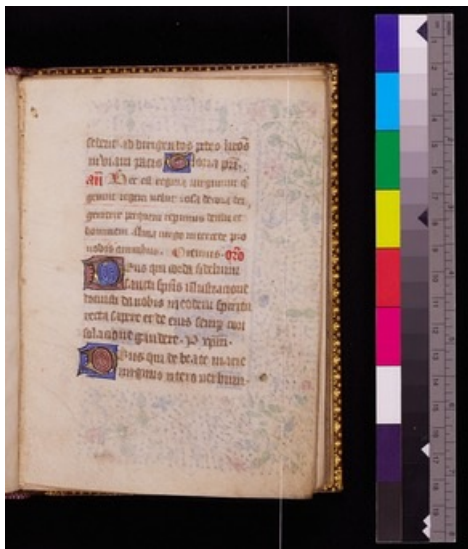 sedent ad dirigendos pedes nr̄os
in viam pacis Gloria pr̄i
añ Hec est regina virginum q̄
genuit regem velut rosa decora dei
genitrix per quem reperimus deum et
hominem alma virgo intercede pro
nobis omnibus. Oremus. oro
Deus qui corda fidelium
sancti sp̄us illustratione
docuisti da nobis in eodem spiritu
recta sapere et de eius semp̄ con
solatione gaudere. P xp̄m.
Deus qui de beate marie
virginis utero verbum.